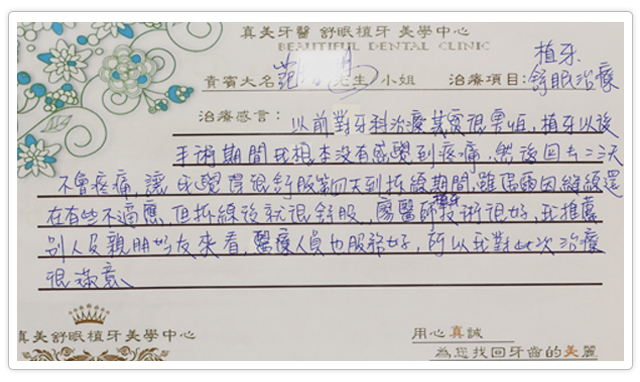 真美牙醫 舒眠植牙 美學中心
BEAUTIFUL DENTAL CLINIC
植牙
貴賓大名 先生/小姐 治療項目:舒眠治療
治療感言: 以前對牙科治療其實很畏懼,植牙以後
手術期間我根本沒有感覺到疼痛,然後回去二三天
不會疼痛,讓我覺得很舒服第四天到拆線期間,雖偶爾因縫線還
在有些不適應,但拆線後就很舒服,醫師植牙技術很好,我推薦
別人及親朋好友來看,醫療人員也服務好,所以我對此次治療
很滿意、
真美舒眠植牙美學中心
用心真誠
為您找回牙齒的美麗